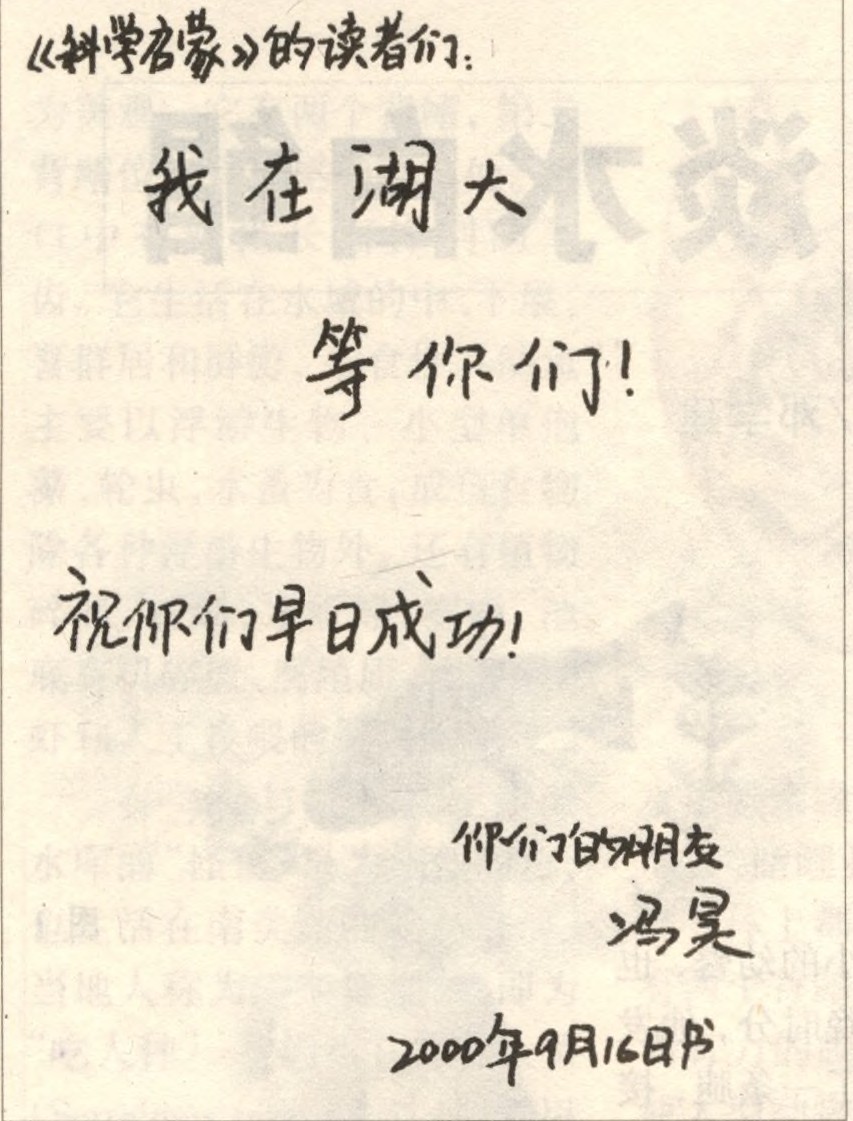 《科学启蒙》的读者们：
我在湖大
等你们！
祝你们早日成功！
你们的朋友
冯昊
2000年9月16日书